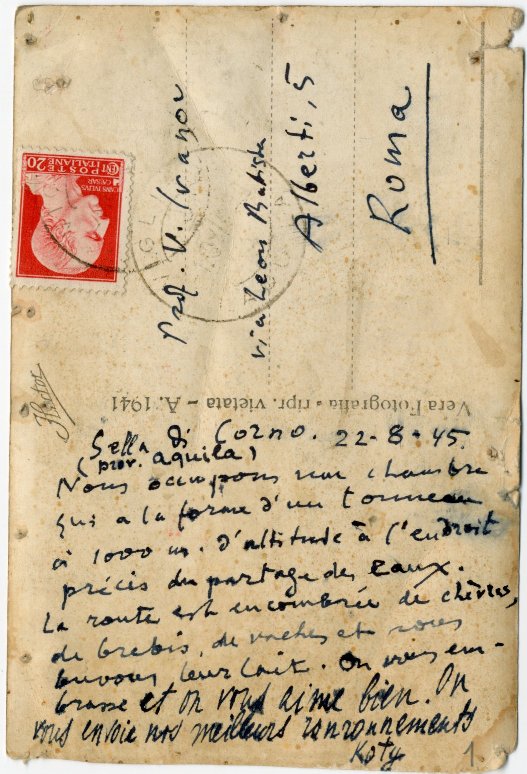 Prof. V. Ivanov
via Leon Batista
Alberti, 5
Roma
CENT 20
POSTE
ITALIANE
IVLIVS
CAESAR
Vera Fotografia - ripr. vietata - A. 1941
Sella di Corno. 22-8-45.
(prov. aquila)
Nous occupons une chambre
qui a la forme d'un tonneau
à 1000 m. d'altitude à l'endroit
précis du partage des eaux.
La route est encombrée de chèvres,
de brebis, de vaches et nous
buvons leur lait. On vous em-
brasse et on vous aime bien. On
vous envoie nos meilleurs ronronnements
Koty
1